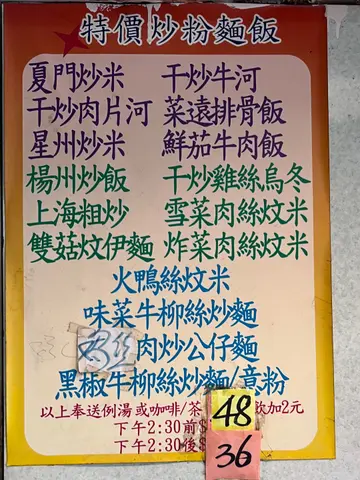 特價炒粉麵飯
夏門炒米 干炒牛河
干炒肉片河 菜遠排骨飯
星州炒米 鮮茄牛肉飯
楊州炒飯 干炒雞絲烏冬
上海粗炒 雪菜肉絲炆米
雙菇炆伊麵 炸菜肉絲炆米
火鴨絲炆米
味菜牛柳絲炒麵
肉炒公仔麵
黑椒牛柳絲炒麵/意粉
以上奉送例湯或咖啡/茶 飲加2元
下午2:30前$48
下午2:30後$36